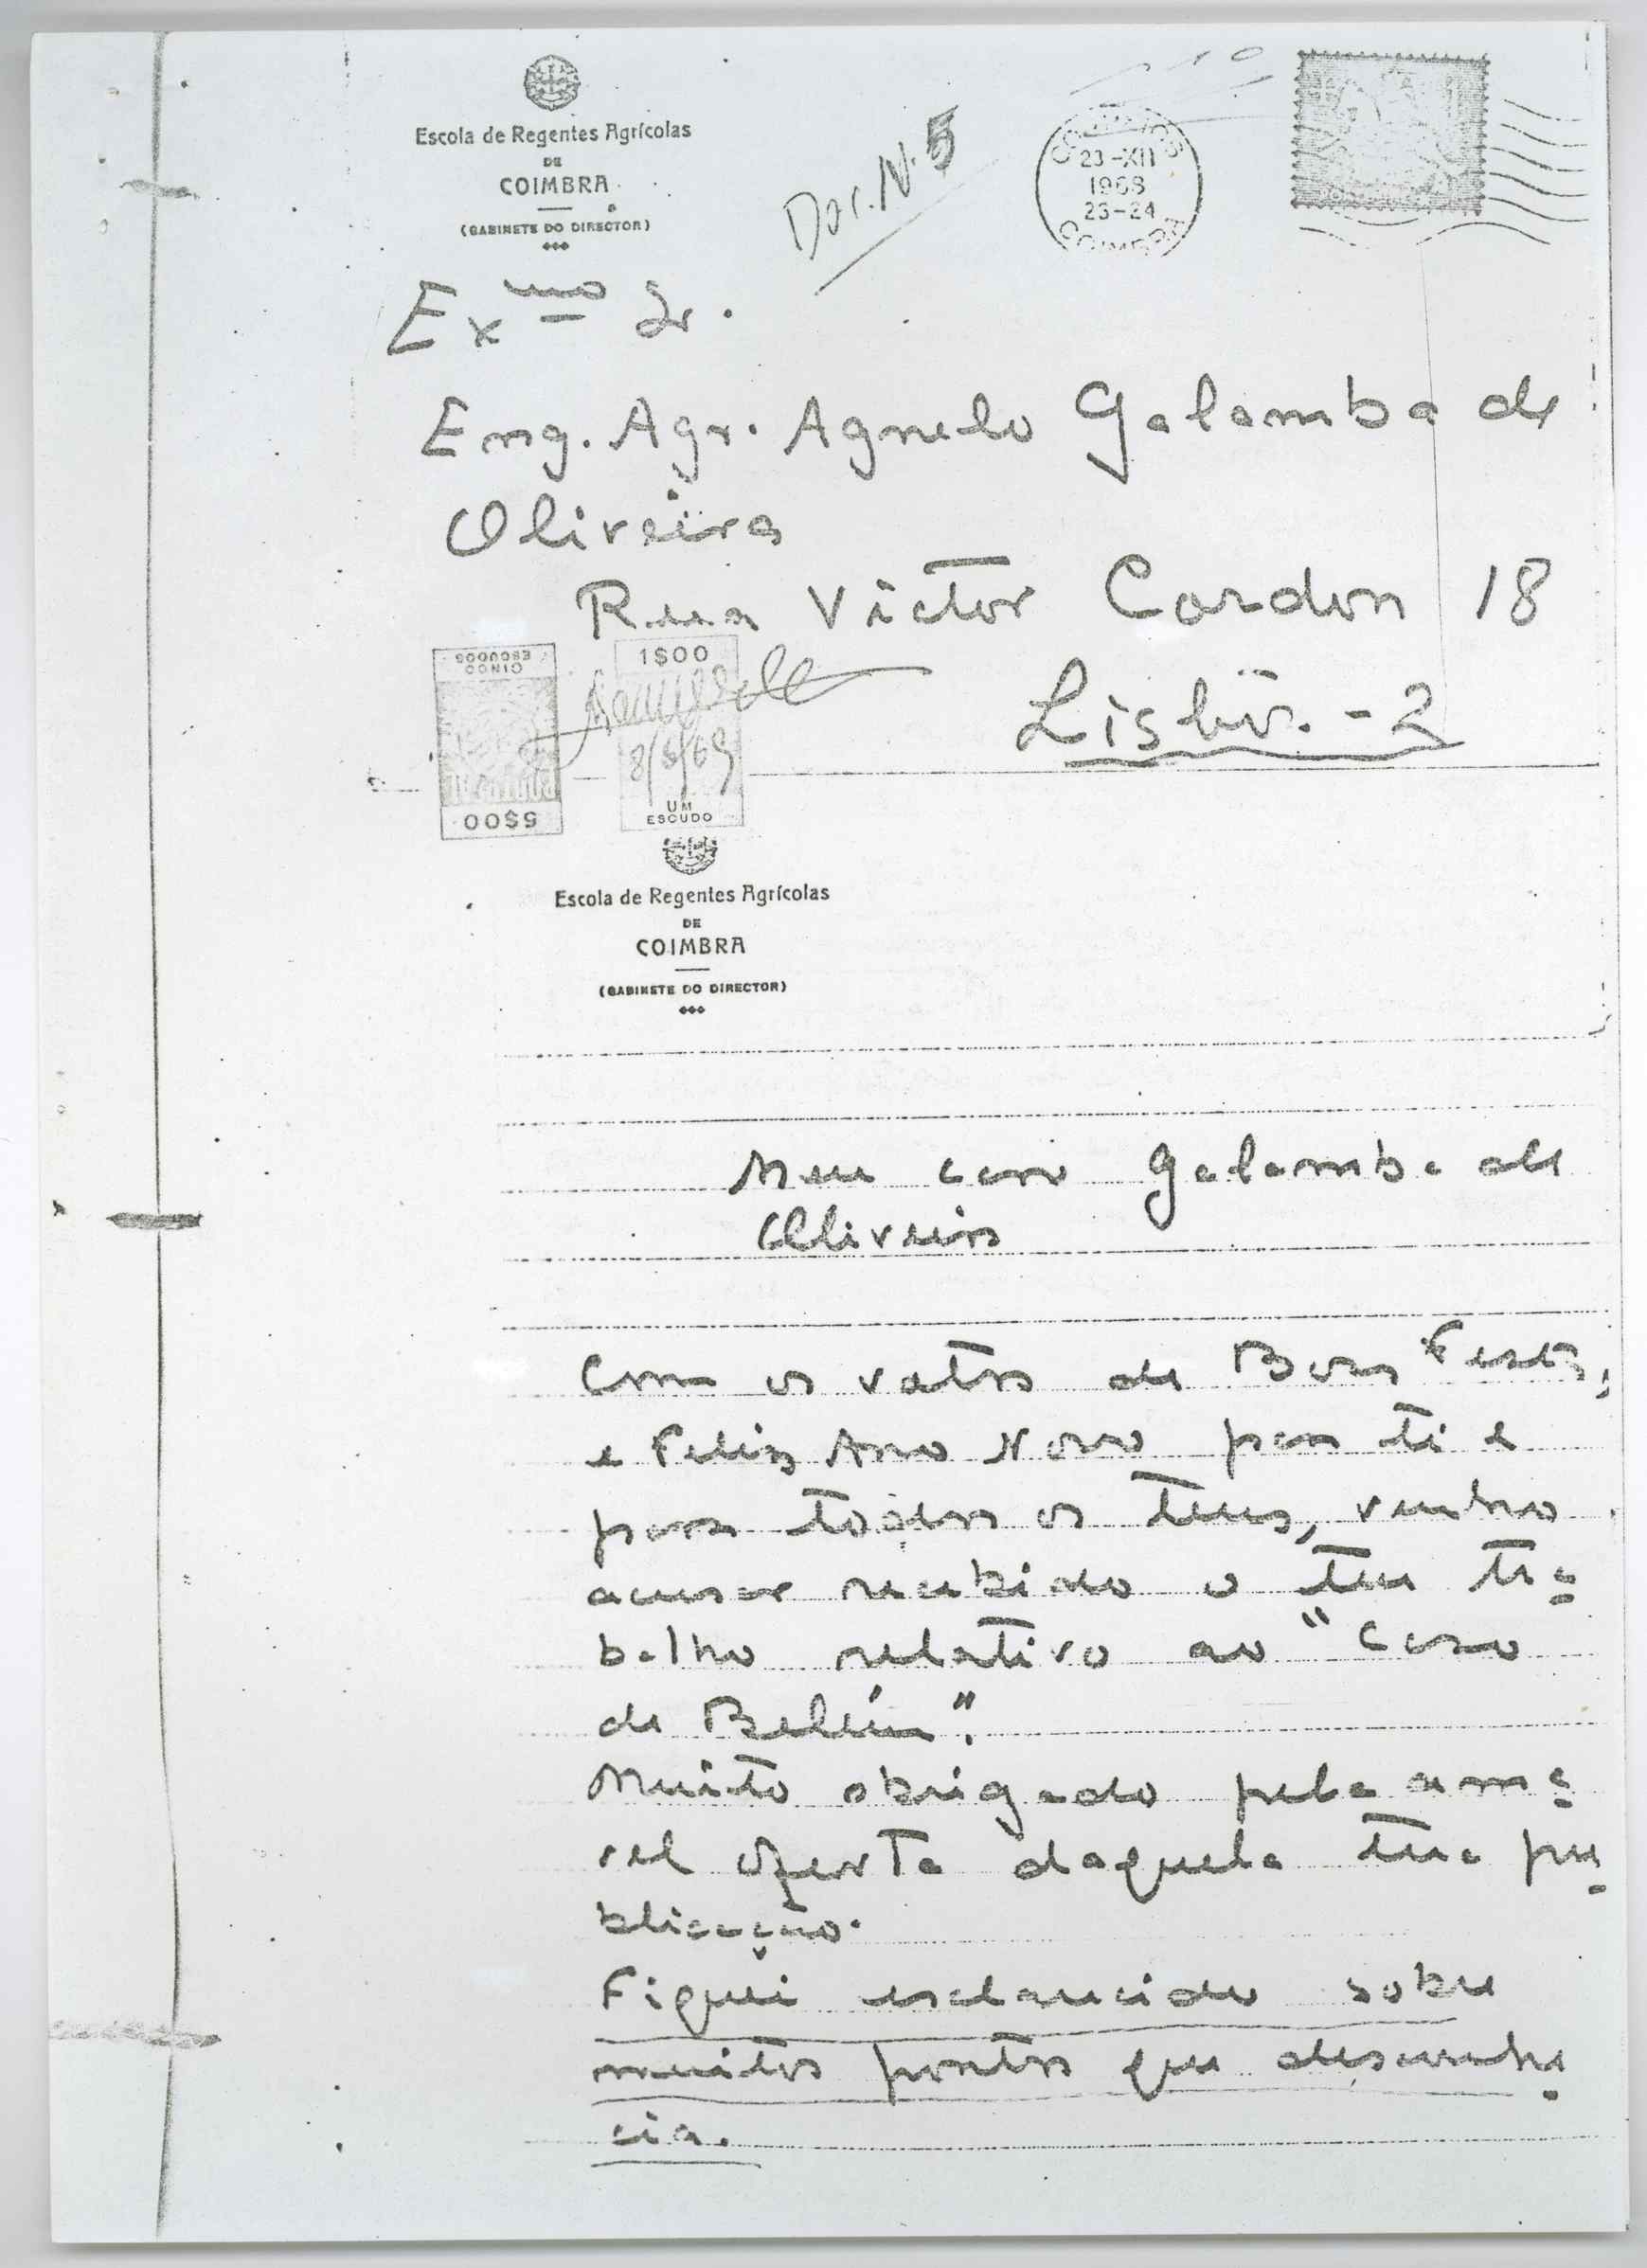 Escola de Regentes Agrícolas
DE
COIMBRA
(GABINETE DO DIRECTOR)
Doc. N. 5
23-XII
1968
23-24
COIMBRA
Exmo Sr.
Eng. Agr. Agnelo Galamba de
Oliveira
Rua Victor Cordon 18
Lisboa - 2
CINCO
ESCUDOS
5$00
1$00
8/5/69
UM
ESCUDO
Escola de Regentes Agrícolas
DE
COIMBRA
(GABINETE DO DIRECTOR)
Meu caro Galamba de
Oliveira
Com os votos de Boas Festas,
e Feliz Ano Novo para ti e
para todos os teus, venho
acusar recebido o teu tra
balho relativo ao "Caso
de Belém".
Muito obrigado pela amá
vel oferta daquela tua pu
blicação.
Fiquei esclarecido sobre
muitos pontos que desconhe
cia.